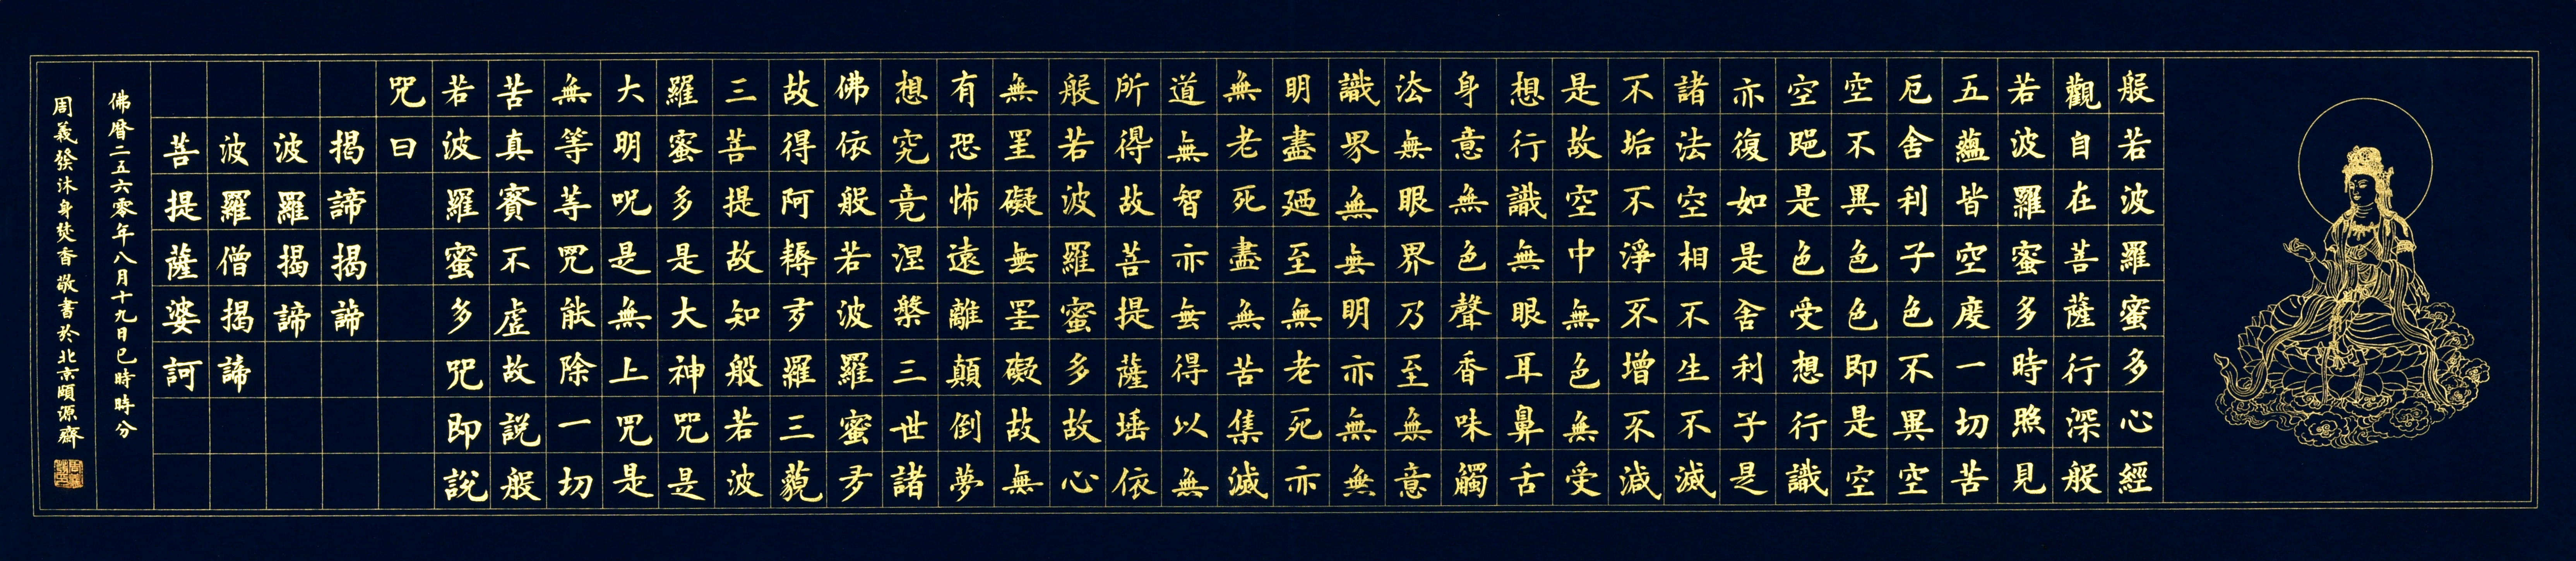 般若波羅蜜多心經
觀自在菩薩行深般
若波羅蜜多時照見
五蘊皆空度一切苦
厄舍利子色不異空
空不異色色即是空
空即是色受想行識
亦復如是舍利子是
諸法空相不生不滅
不垢不淨不增不減
是故空中無色無受
想行識無眼耳鼻舌
身意無色聲香味觸
法無眼界乃至無意
識界無無明亦無無
明盡廼至無老死亦
無老死盡無苦集滅
道無智亦無得以無
所得故菩提薩埵依
般若波羅蜜多故心
無罣礙無罣礙故無
有恐怖遠離顛倒夢
想究竟涅槃三世諸
佛依般若波羅蜜多
故得阿耨多羅三藐
三菩提故知般若波
羅蜜多是大神咒是
大明咒是無上咒是
無等等咒能除一切
苦真實不虛故說般
若波羅蜜多咒即說
咒曰
揭諦揭諦
波羅揭諦
波羅僧揭諦
菩提薩婆訶
佛曆二五六零年八月十九日巳時時分
周義癸沐身焚香敬書於北京頤源齋